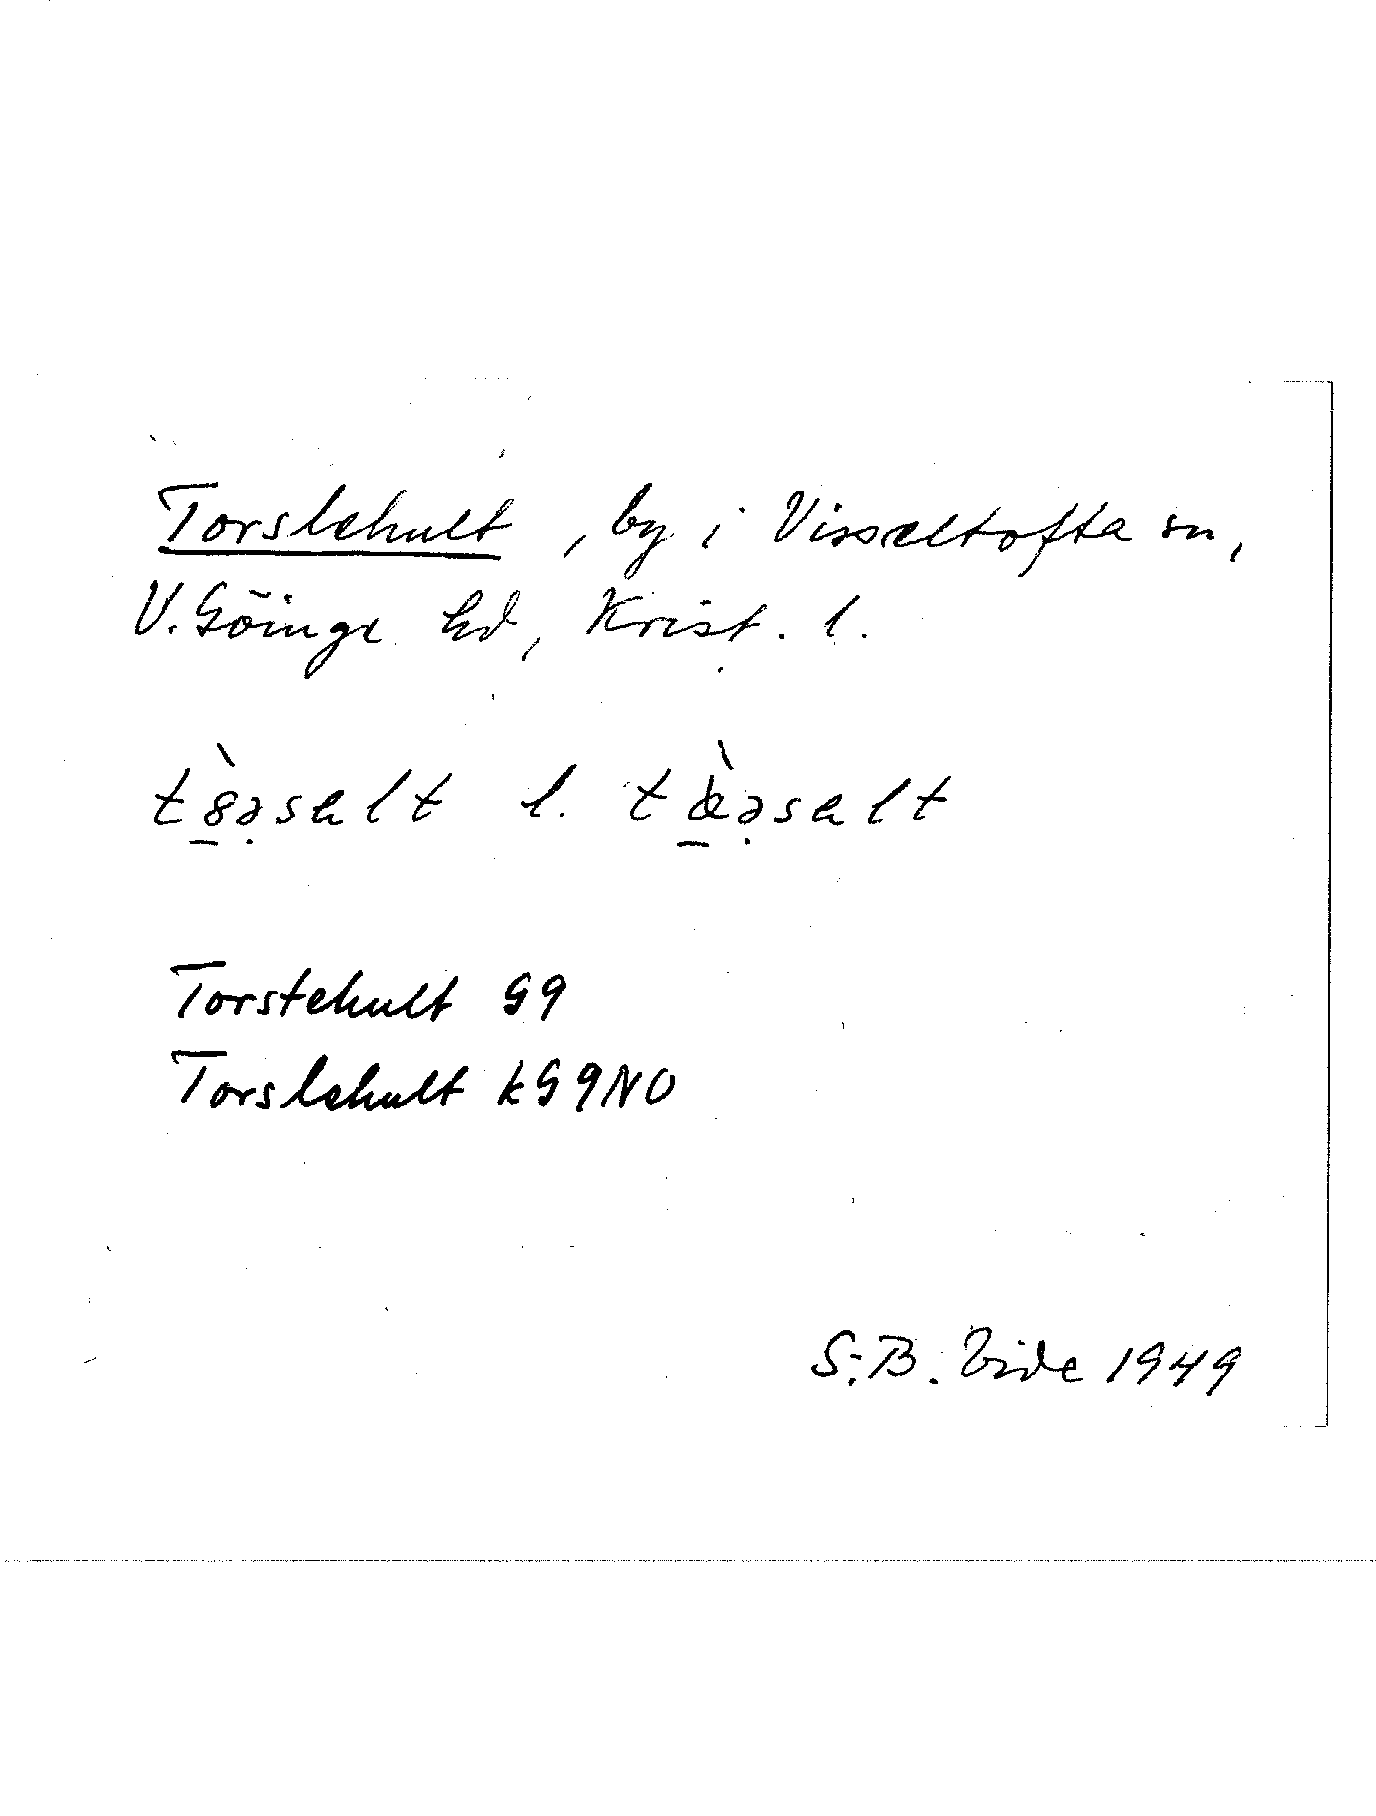 Torslehult, by i Visseltofta sn,
V. Göinge hd, Krist. l.
l.
Torstehult G9
Torslehult kG9NO
S.B. Vide 1949